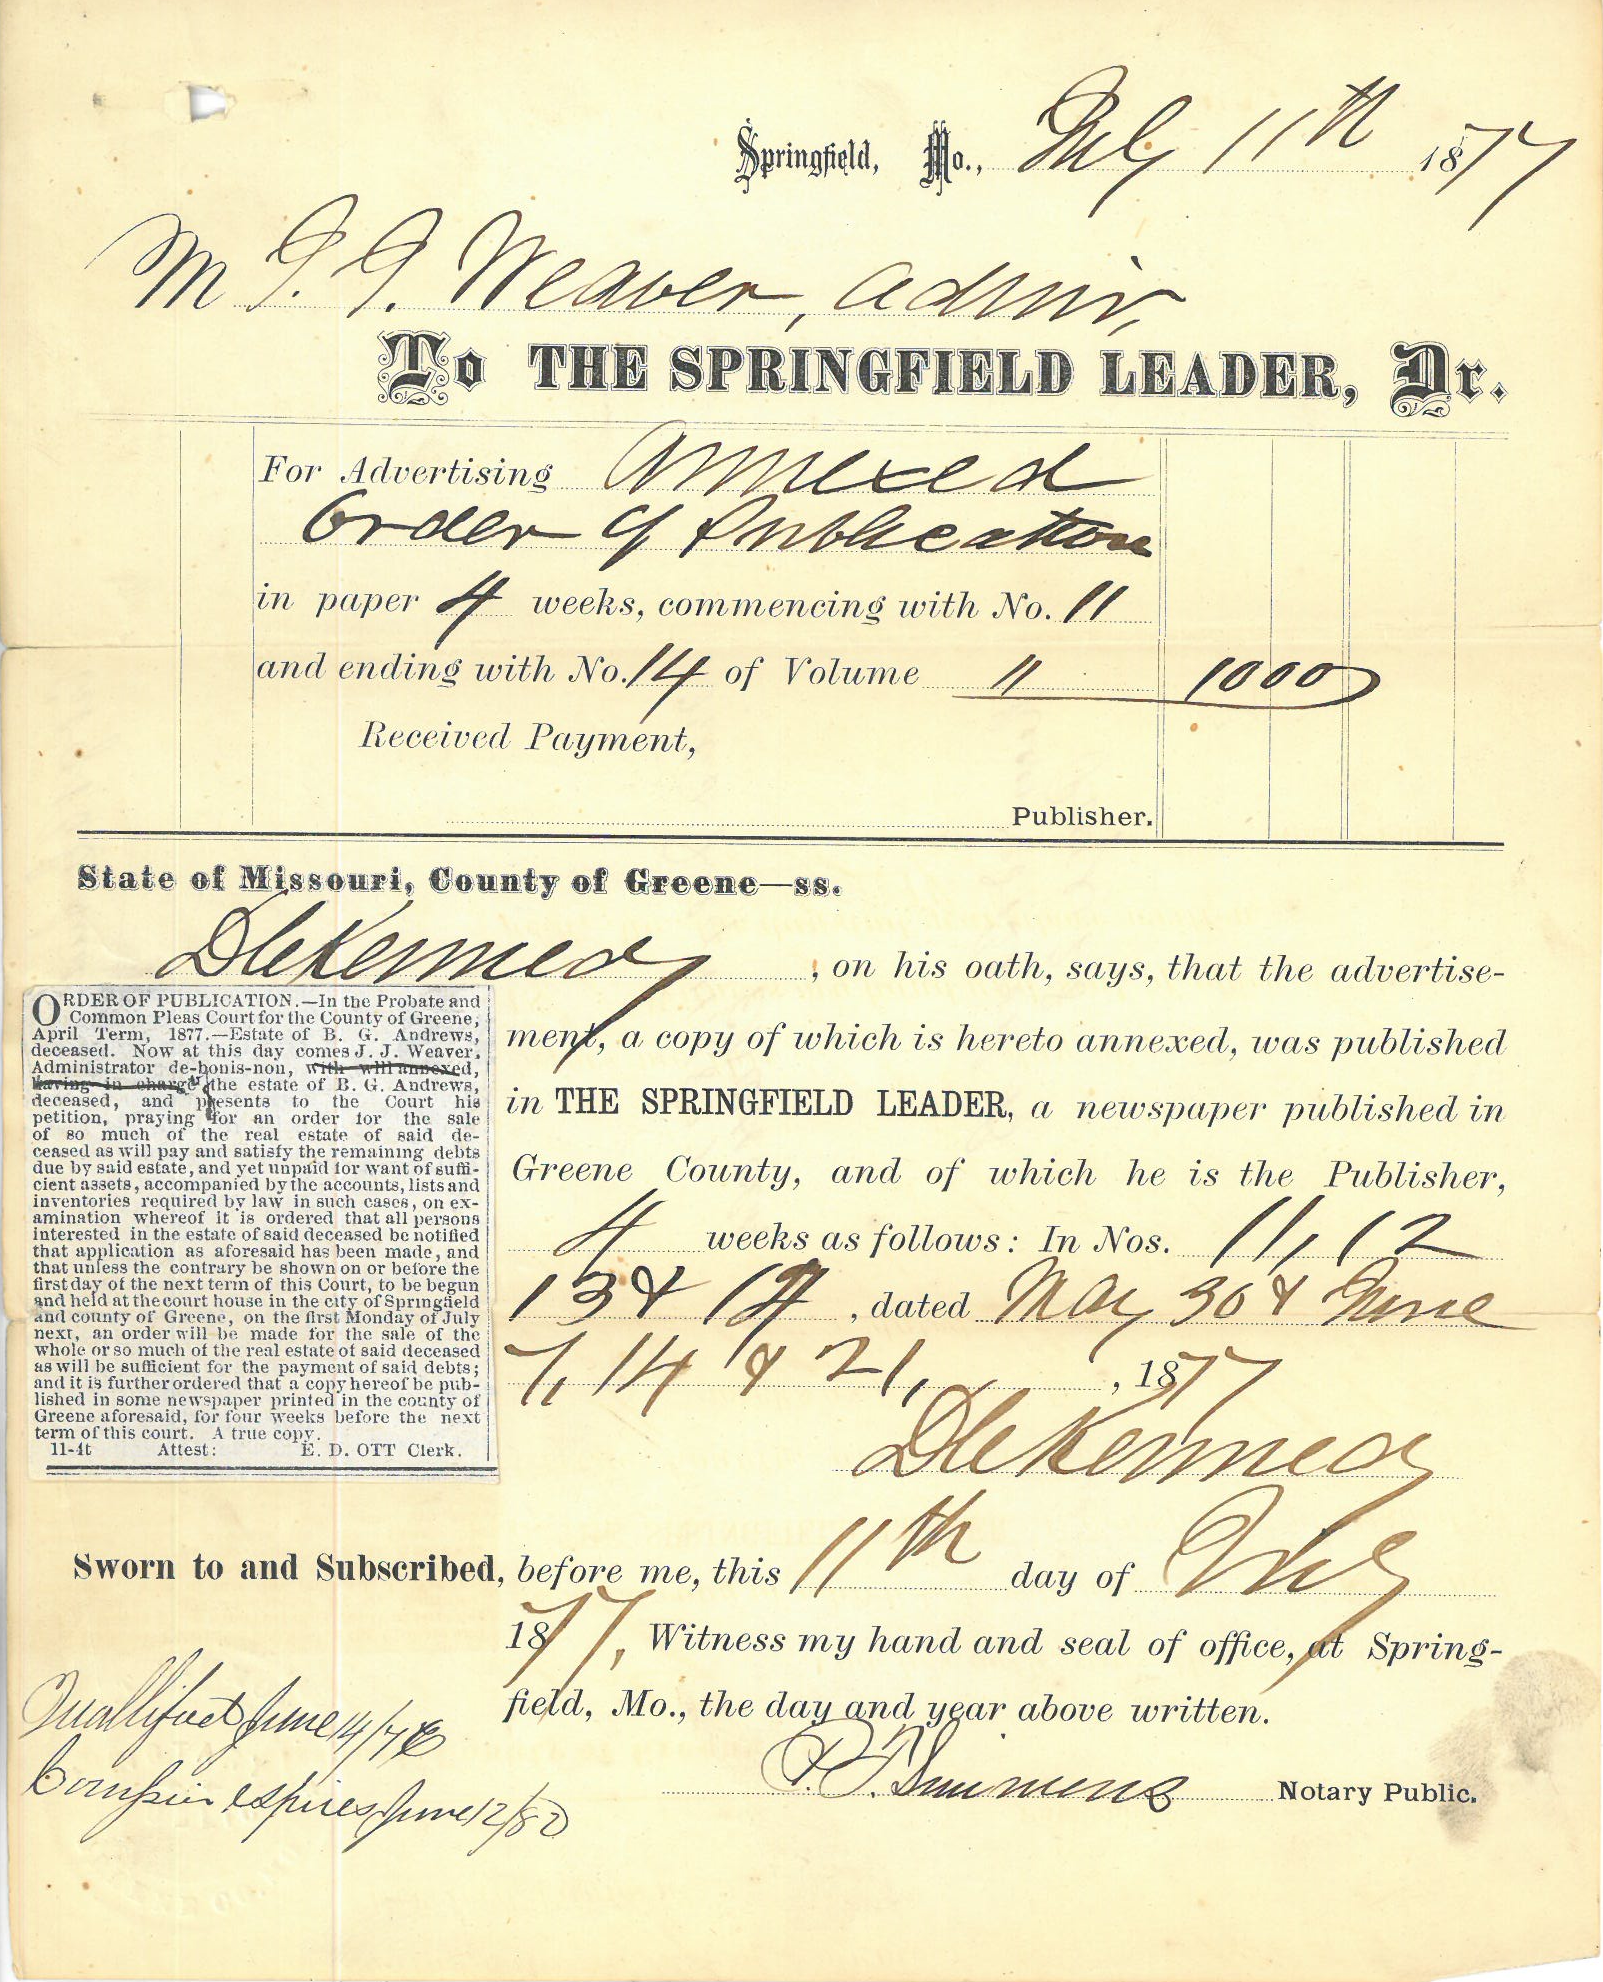 Springfield, Mo., July 11th 1877
M J. J. Weaver, Admr,
To THE SPRINGFIELD LEADER, Dr.
For Advertising Annexed
Order of Publication
in paper 4 weeks, commencing with No. 11
and ending with No. 14 of Volume 11 1000
Received Payment,
Publisher.
State of Missouri, County of Greene—ss.
D C Kennedy, on his oath, says, that the advertise-
ment, a copy of which is hereto annexed, was published
in THE SPRINGFIELD LEADER, a newspaper published in
Greene County, and of which he is the Publisher,
4 weeks as follows: In Nos. 11, 12
13 & 14, dated May 30 & June
7, 14 & 21, , 1877
D C Kennedy
ORDER OF PUBLICATION.—In the Probate and
Common Pleas Court for the County of Greene,
April Term, 1877.—Estate of B. G. Andrews,
deceased. Now at this day comes J. J. Weaver,
Administrator de-bonis-non, with will annexed,
having in charge the estate of B. G. Andrews,
deceased, and presents to the Court his
petition, praying for an order for the sale
of so much of the real estate of said de-
ceased as will pay and satisfy the remaining debts
due by said estate, and yet unpaid for want of suffi-
cient assets, accompanied by the accounts, lists and
inventories required by law in such cases, on ex-
amination whereof it is ordered that all persons
interested in the estate of said deceased be notified
that application as aforesaid has been made, and
that unless the contrary be shown on or before the
first day of the next term of this Court, to be begun
and held at the court house in the city of Springfield
and county of Greene, on the first Monday of July
next, an order will be made for the sale of the
whole or so much of the real estate of said deceased
as will be sufficient for the payment of said debts;
and it is further ordered that a copy hereof be pub-
lished in some newspaper printed in the county of
Greene aforesaid, for four weeks before the next
term of this court. A true copy.
11-4t Attest: E. D. OTT Clerk.
Sworn to and Subscribed, before me, this 11th day of July
1877, Witness my hand and seal of office, at Spring-
field, Mo., the day and year above written.
P. T. Simmons Notary Public.
Quallified June 14/76
expires June 12/80